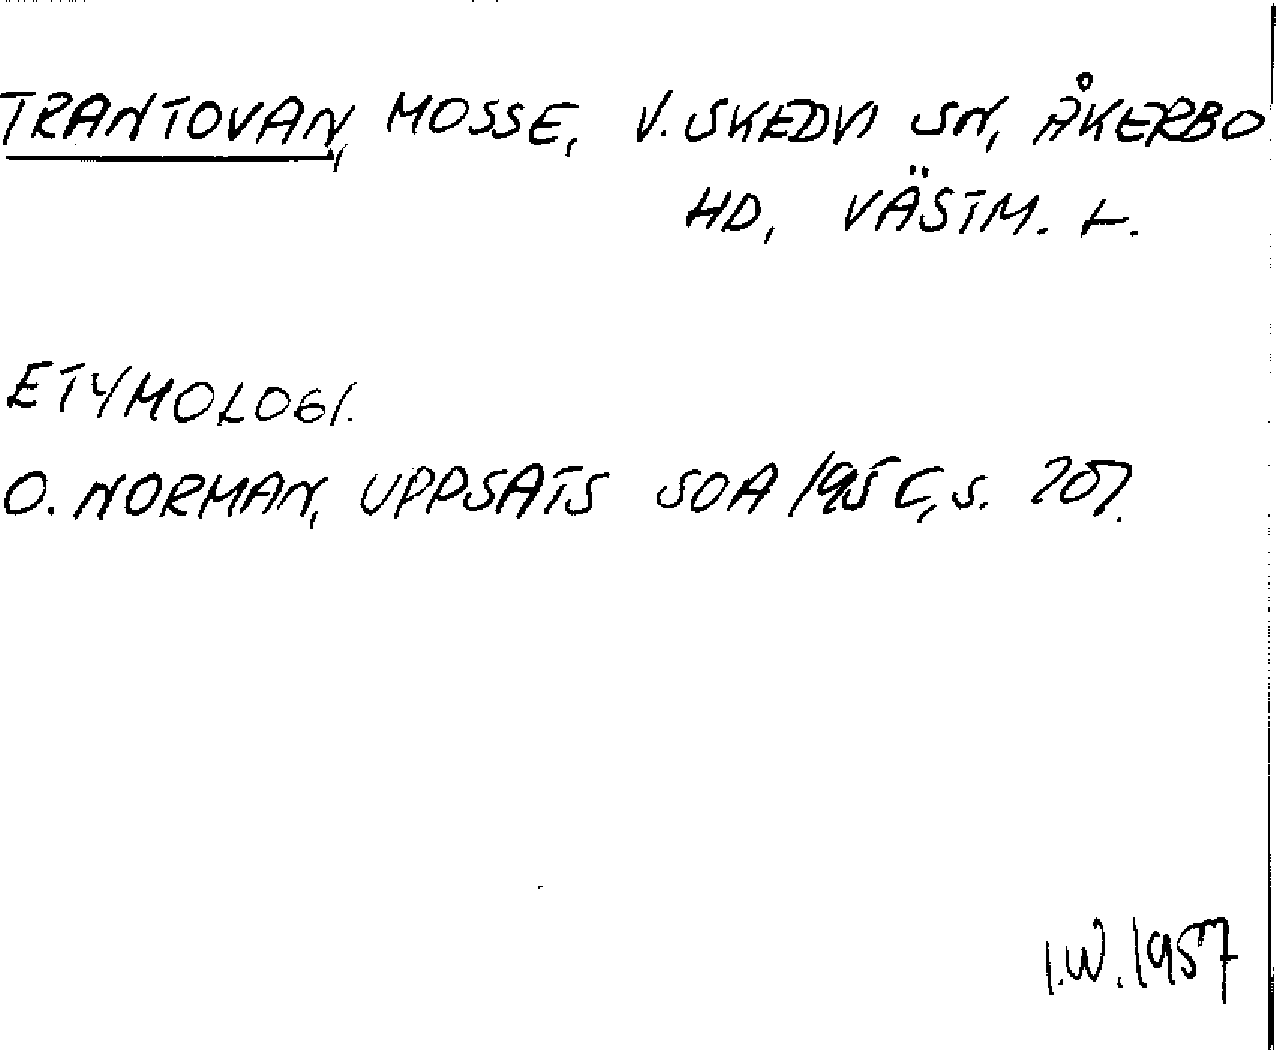 TRANTOVAN, MOSSE, V. SKEDVI SN, ÅKERBO
HD, VÄSTM. L.
ETYMOLOGI.
O. NORMAN, UPPSATS SOA s.
I.W. 1957